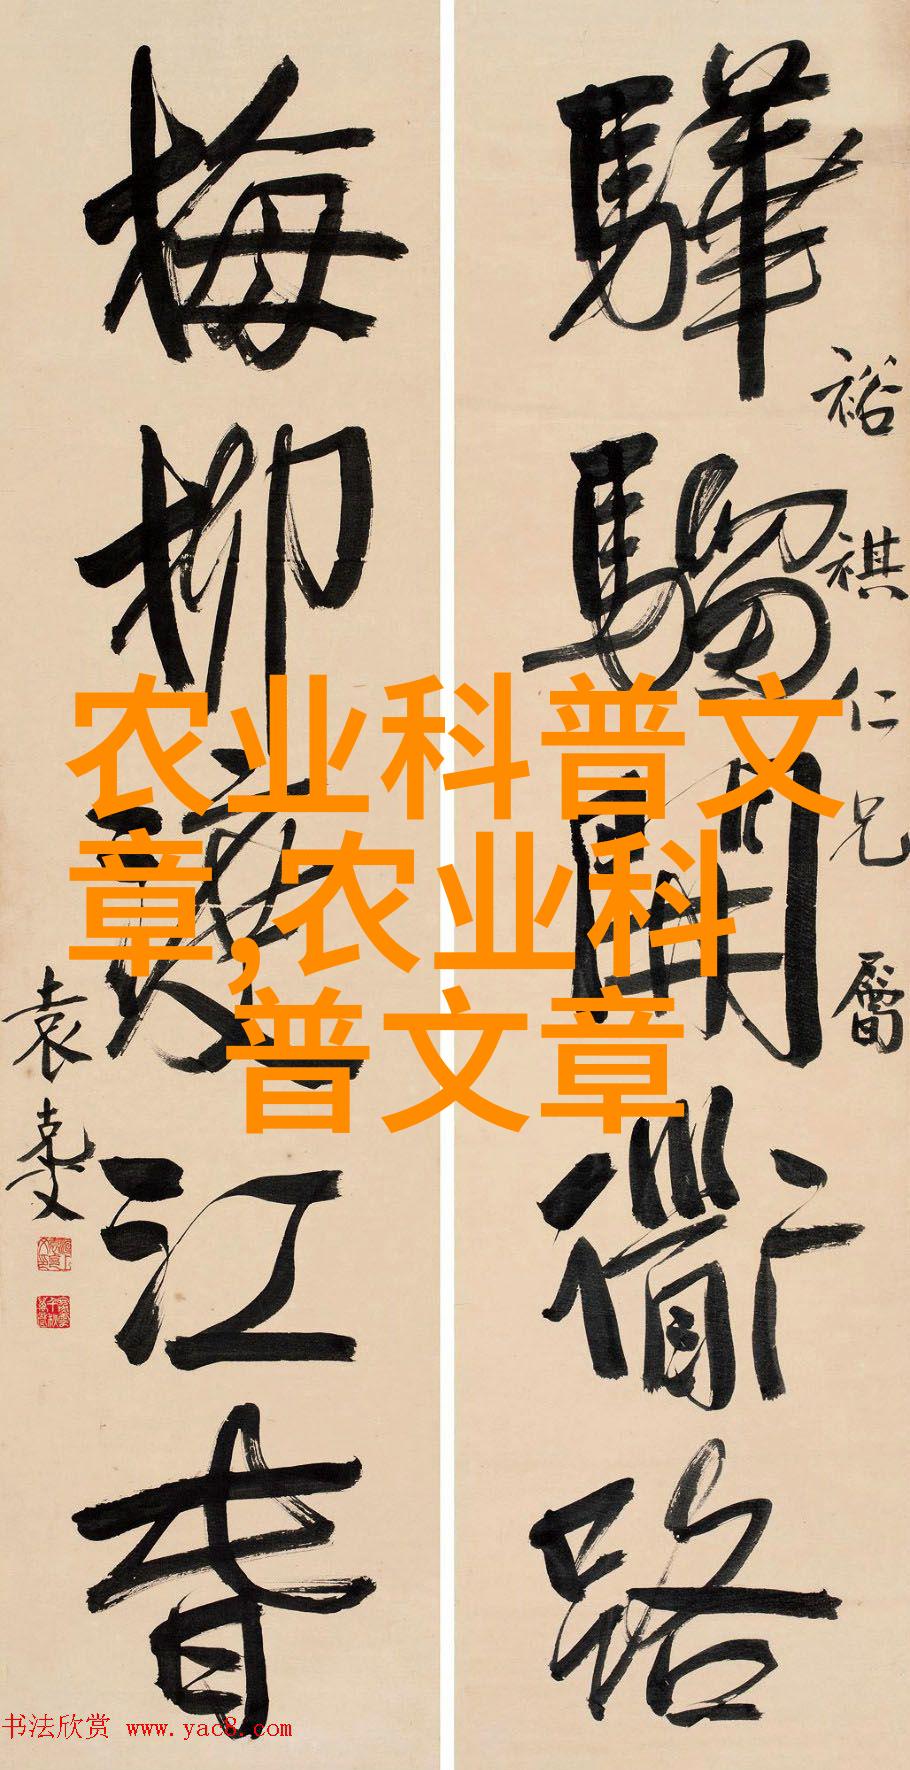 驊騮開衜路
裕祺仁兄屬
梅柳渡江春
袁克文
农业科普文
章,农业科
普文章
书法欣赏 www.yac8.com